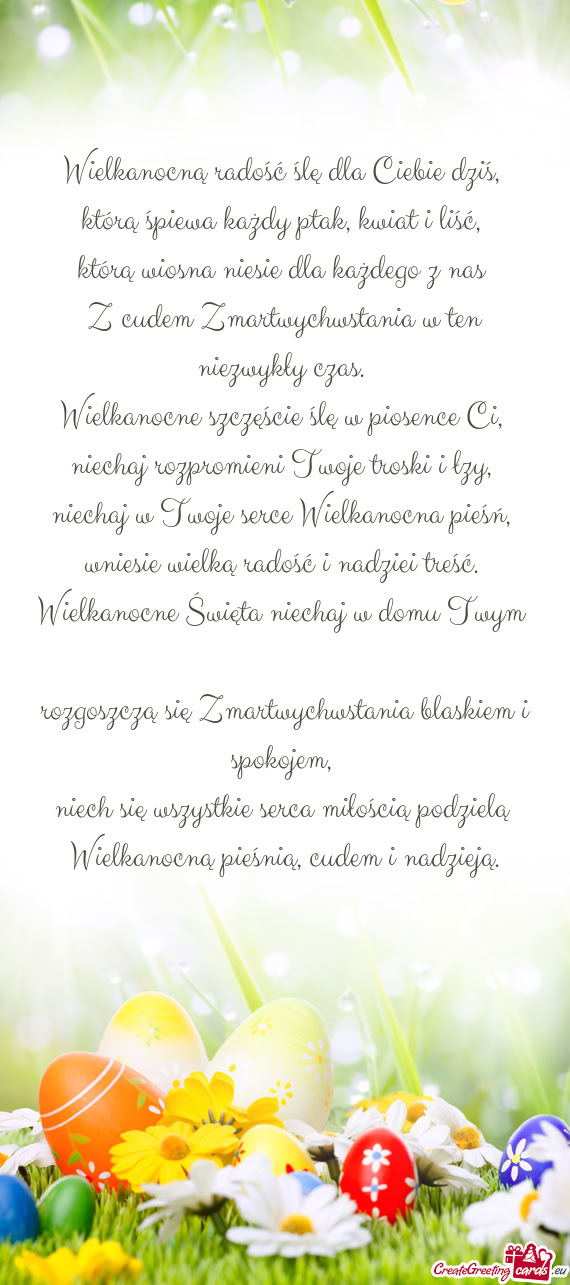 Wielkanocną radość ślę dla Ciebie dziś,
którą śpiewa każdy ptak, kwiat i liść,
którą wiosna niesie dla każdego z nas
Z cudem Zmartwychwstania w ten
niezwykły czas.
Wielkanocne szczęście ślę w piosence Ci,
niechaj rozpromieni Twoje troski i łzy,
niechaj w Twoje serce Wielkanocna pieśń,
wniesie wielką radość i nadziei treść.
Wielkanocne Święta niechaj w domu Twym
rozgoszczą się Zmartwychwstania blaskiem i
spokojem,
niech się wszystkie serca miłością podzielą
Wielkanocną pieśnią, cudem i nadzieją.
CreateGreetingcards.eu